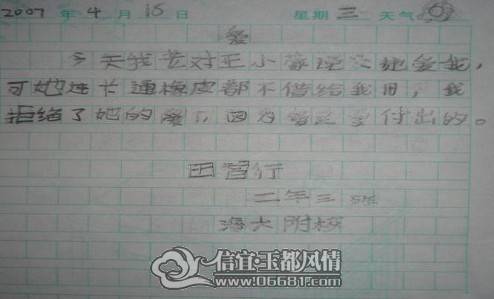 2007 年 4 月 15 日 星期 三 天气
爱
今天我 对王小蒙说 她爱我,
可她连卡通橡皮都不借给我用,我
拒绝了她的爱,因为爱是要付出的。
田智行
二年三班
海大附校
信宜玉都风情
www.06681.com